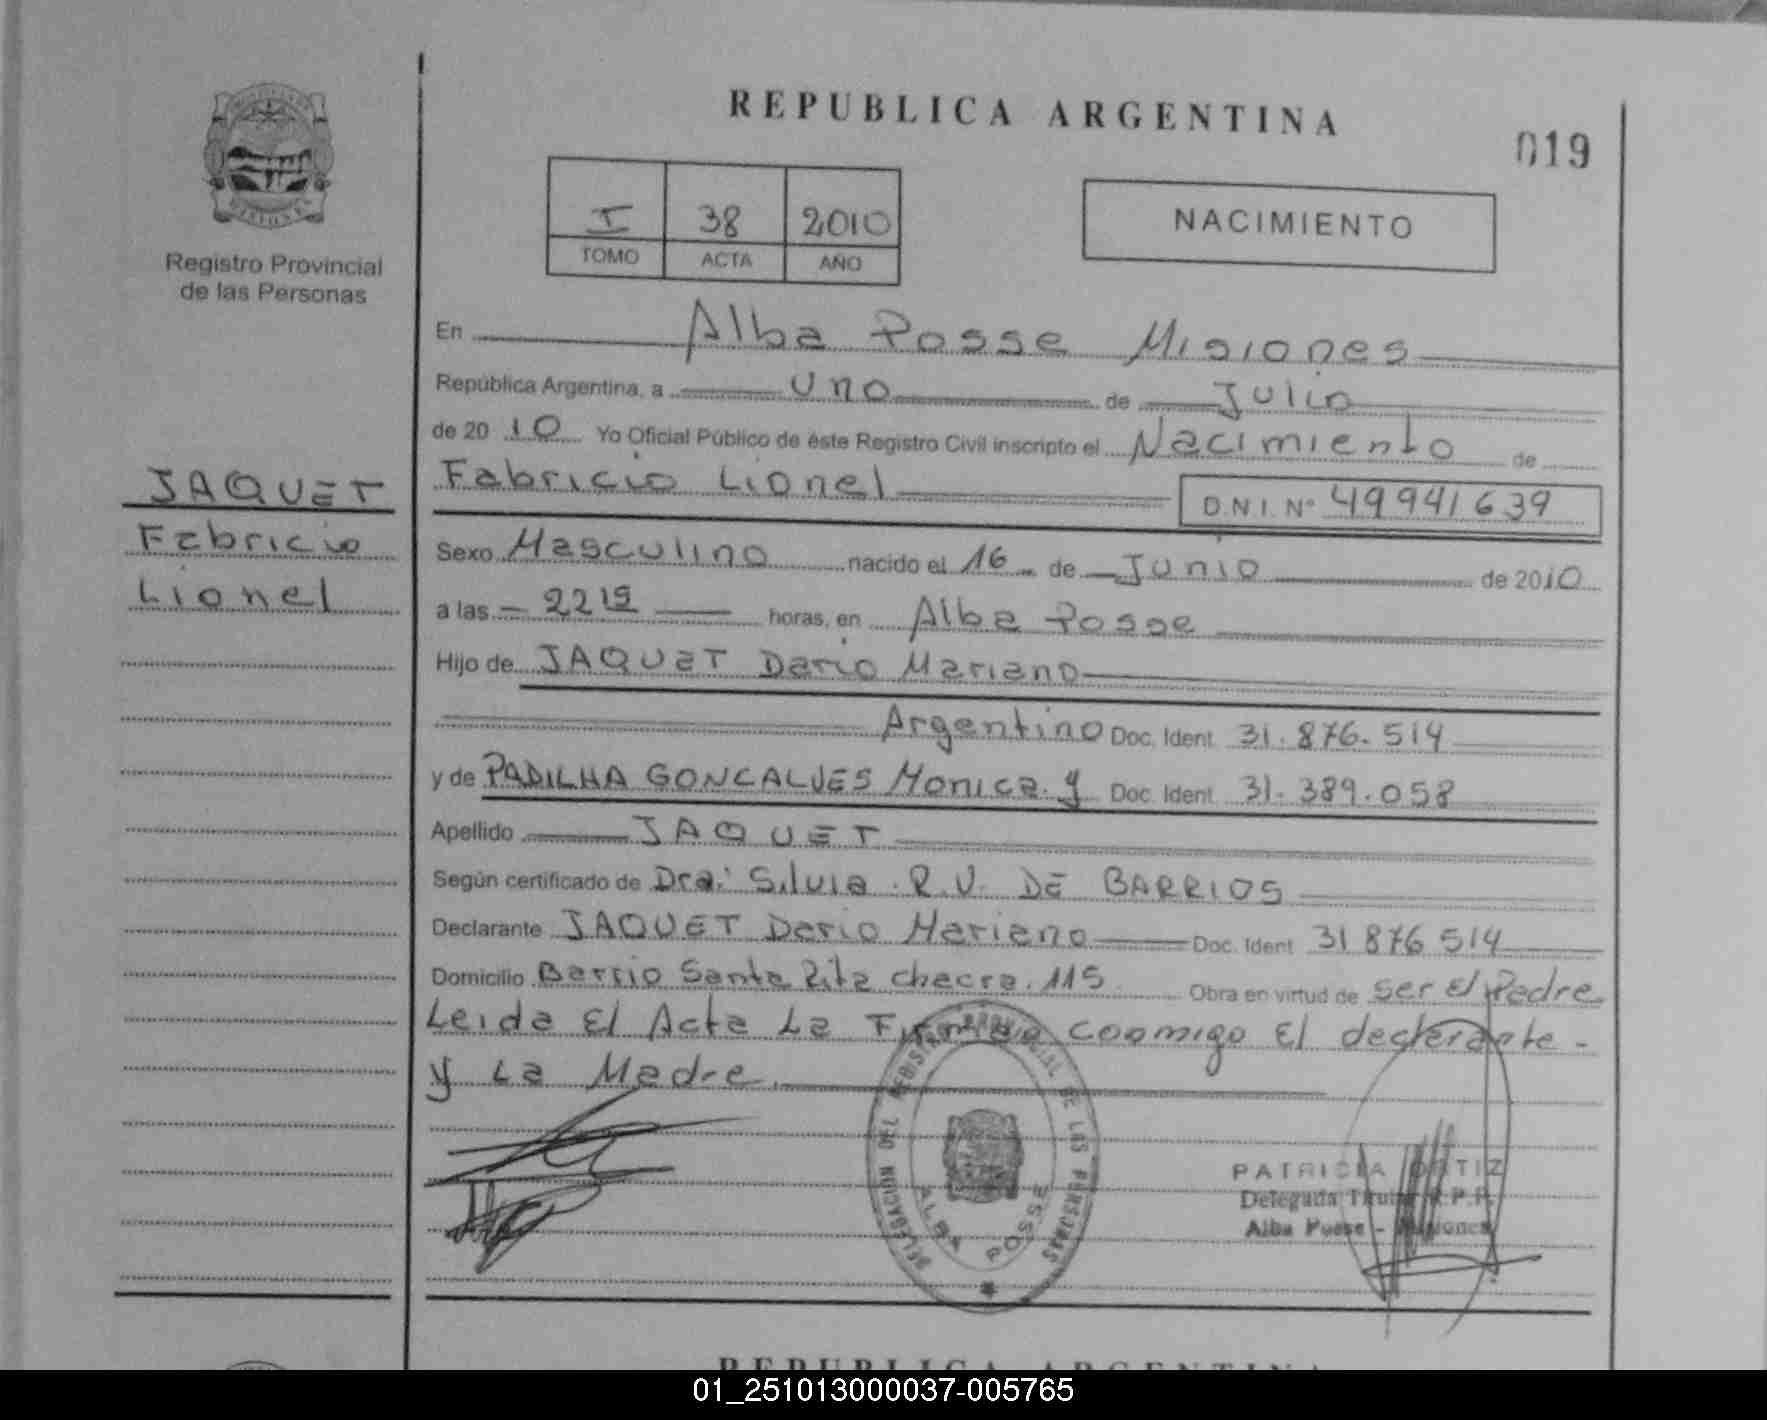 REPUBLICA ARGENTINA
019
I 38 2010
TOMO ACTA AÑO
NACIMIENTO
MISIONES
Registro Provincial
de las Personas
En Alba Posse Misiones
República Argentina, a uno de Julio
de 20 10 Yo Oficial Público de éste Registro Civil inscripto el Nacimiento de
Fabricio Lionel D.N.I. Nº 49941639
JAQUET
Fabricio
Lionel
Sexo Masculino nacido el 16 de Junio de 2010
a las 22 15 horas, en Alba Posse
Hijo de JAQUET Dario Mariano
Argentino Doc. Ident. 31.876.514
y de PADILHA GONCALVES Monica y Doc. Ident. 31.389.058
Apellido JAQUET
Según certificado de Dra. Silvia R.V. DE BARRIOS
Declarante JAQUET Dario Mariano Doc. Ident 31876514
Domicilio Barrio Santa Rita chacra 115 Obra en virtud de ser el Padre
Leida El Acta La Firman coomigo El declarante -
y La Madre.
DELEGACION DEL REGISTRO PROVINCIAL DE LAS PERSONAS
ALBA POSSE
PATRICIA ORTIZ
Delegada Titular R.P.P.
Alba Posse - Misiones
REPUBLICA ARGENTINA
01_251013000037-005765